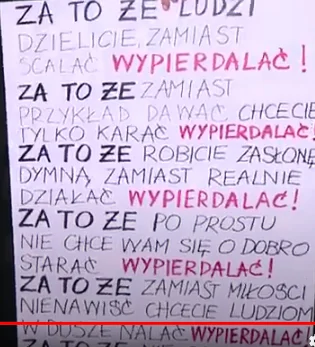 ZA TO ŻE LUDZI
DZIELICIE, ZAMIAST
SCALAĆ WYPIERDALAĆ!
ZA TO ŻE ZAMIAST
PRZYKŁAD DAWAĆ CHCECIE
TYLKO KARAĆ WYPIERDALAĆ!
ZA TO ŻE ROBICIE ZASŁONĘ
DYMNĄ, ZAMIAST REALNIE
DZIAŁAĆ WYPIERDALAĆ!
ZA TO ŻE PO PROSTU
NIE CHCE WAM SIĘ O DOBRO
STARAĆ WYPIERDALAĆ!
ZA TO ŻE ZAMIAST MIŁOŚCI
NIENAWIŚĆ CHCECIE LUDZIOM
W DUSZE NALAĆ WYPIERDALAĆ!
ZA TO ŻE